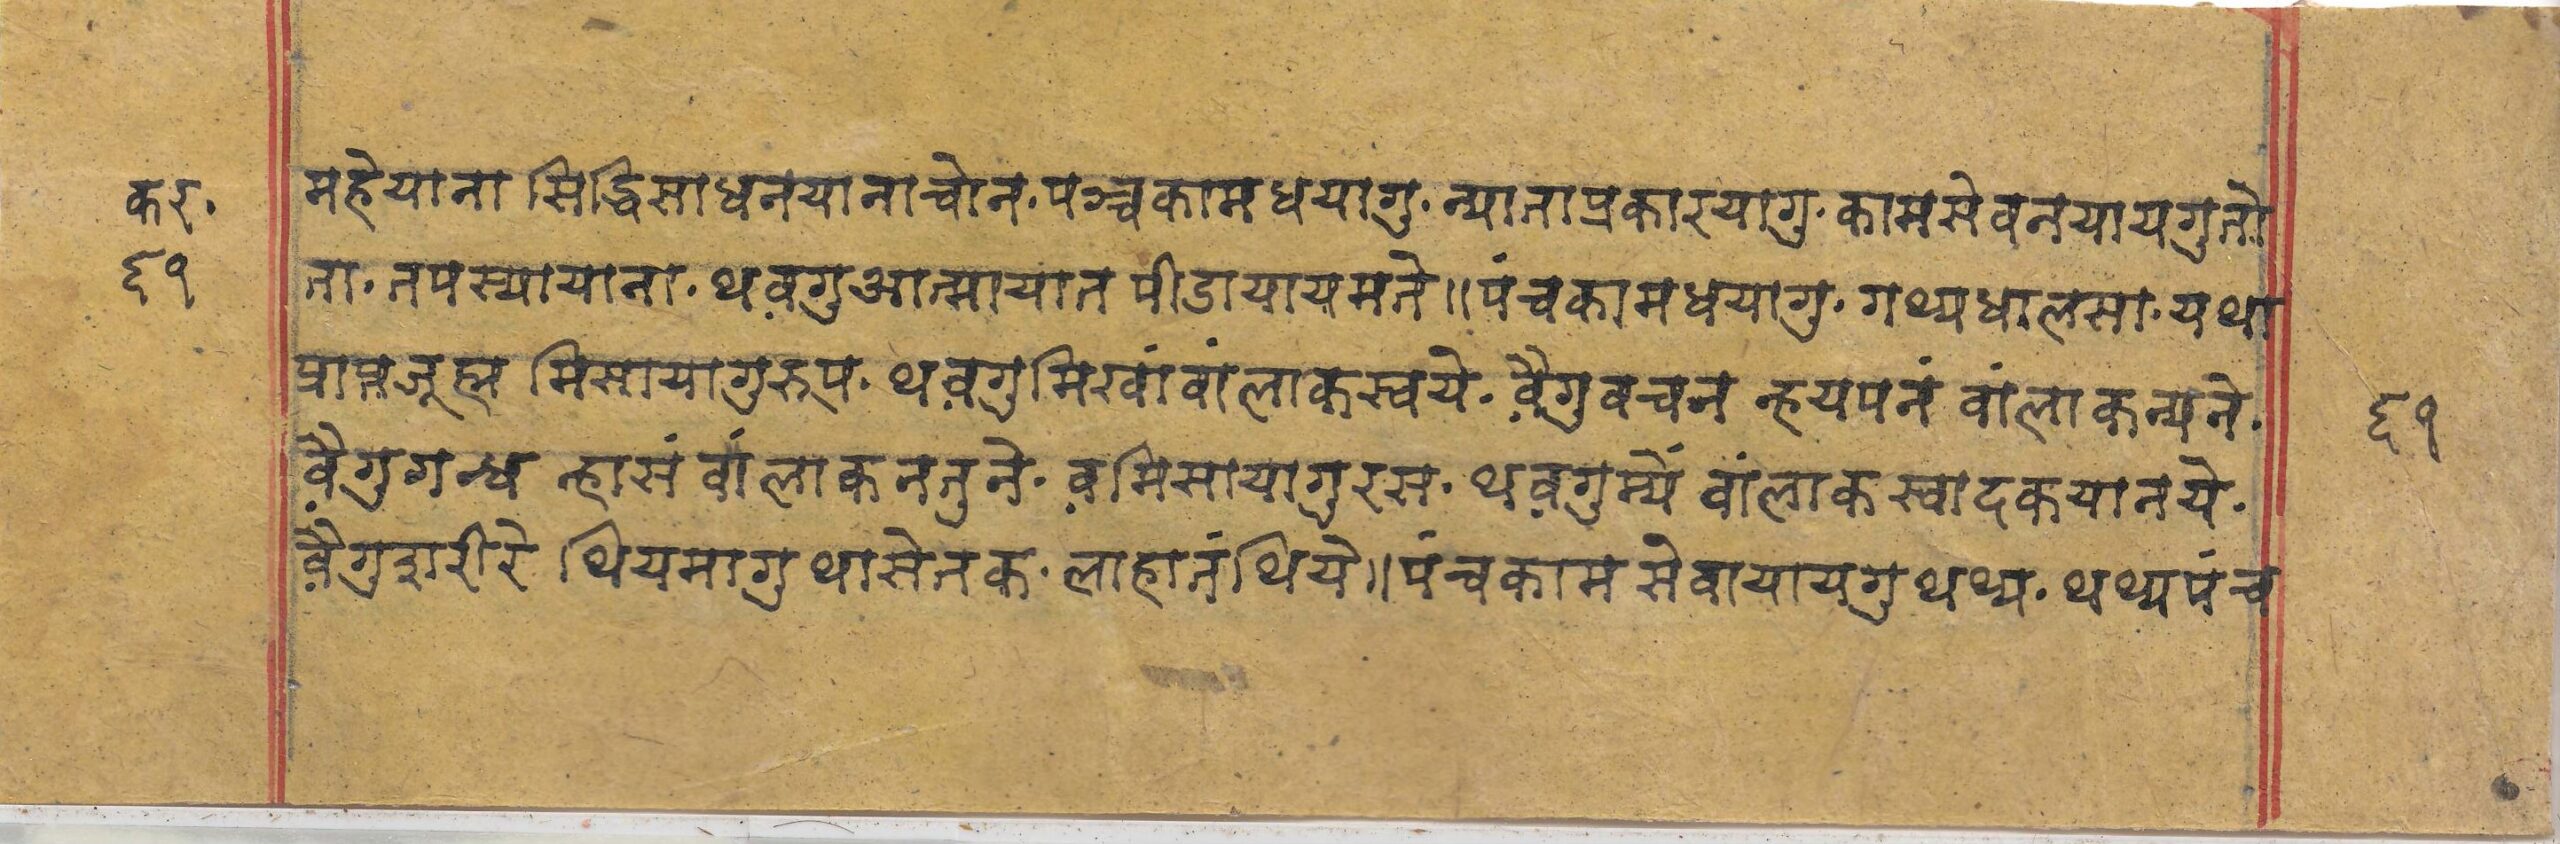 कर.
६१
महेयाना सिद्धिसाधनयानाचोन. पञ्चकामधयागु. न्यानाप्रकारयागु. कामसेवनयायगुतो
ता. तपस्यायाना. थव़गुआत्मायात पीडायायमते॥ पंचकामधयागु. गथ्यधालसा. यथा
प्राप्तजूह्म मिसायागुरुप. थव़गुमिखांवांलाकस्वये. व़ैगुवचन न्हयपनं वांलाकन्यने.
व़ैगुगन्ध न्हासं वांलाकनतुने. व़मिसायागुरस. थव़गुम्यें वांलाकस्वादकयानये.
व़ैगुशरीरे थियमागुथासेतक. लाहातंथिये॥ पंचकामसेवायायगुथथ्य. थथ्यपंच
६१